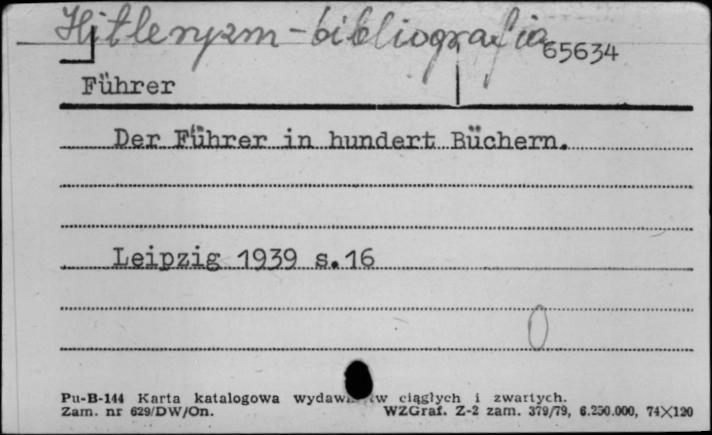 Hitleryzm - bibliografia
65634
Führer
Der Führer in hundert Büchern.
Leipzig 1939 s.16
0
Pu-B-144 Karta katalogowa ciągłych i zwartych.
Zam. nr 629/DW/On. WZGraf. Z-2 zam. 379/79, 6.250.000, 74×120